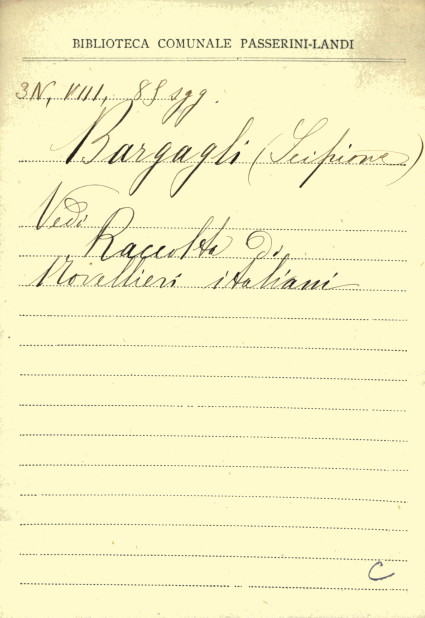 BIBLIOTECA COMUNALE PASSERINI-LANDI
3N, VIII, 85 sgg.
Bargagli (Scipione)
Vedi
Raccolta di
Novellieri italiani
C